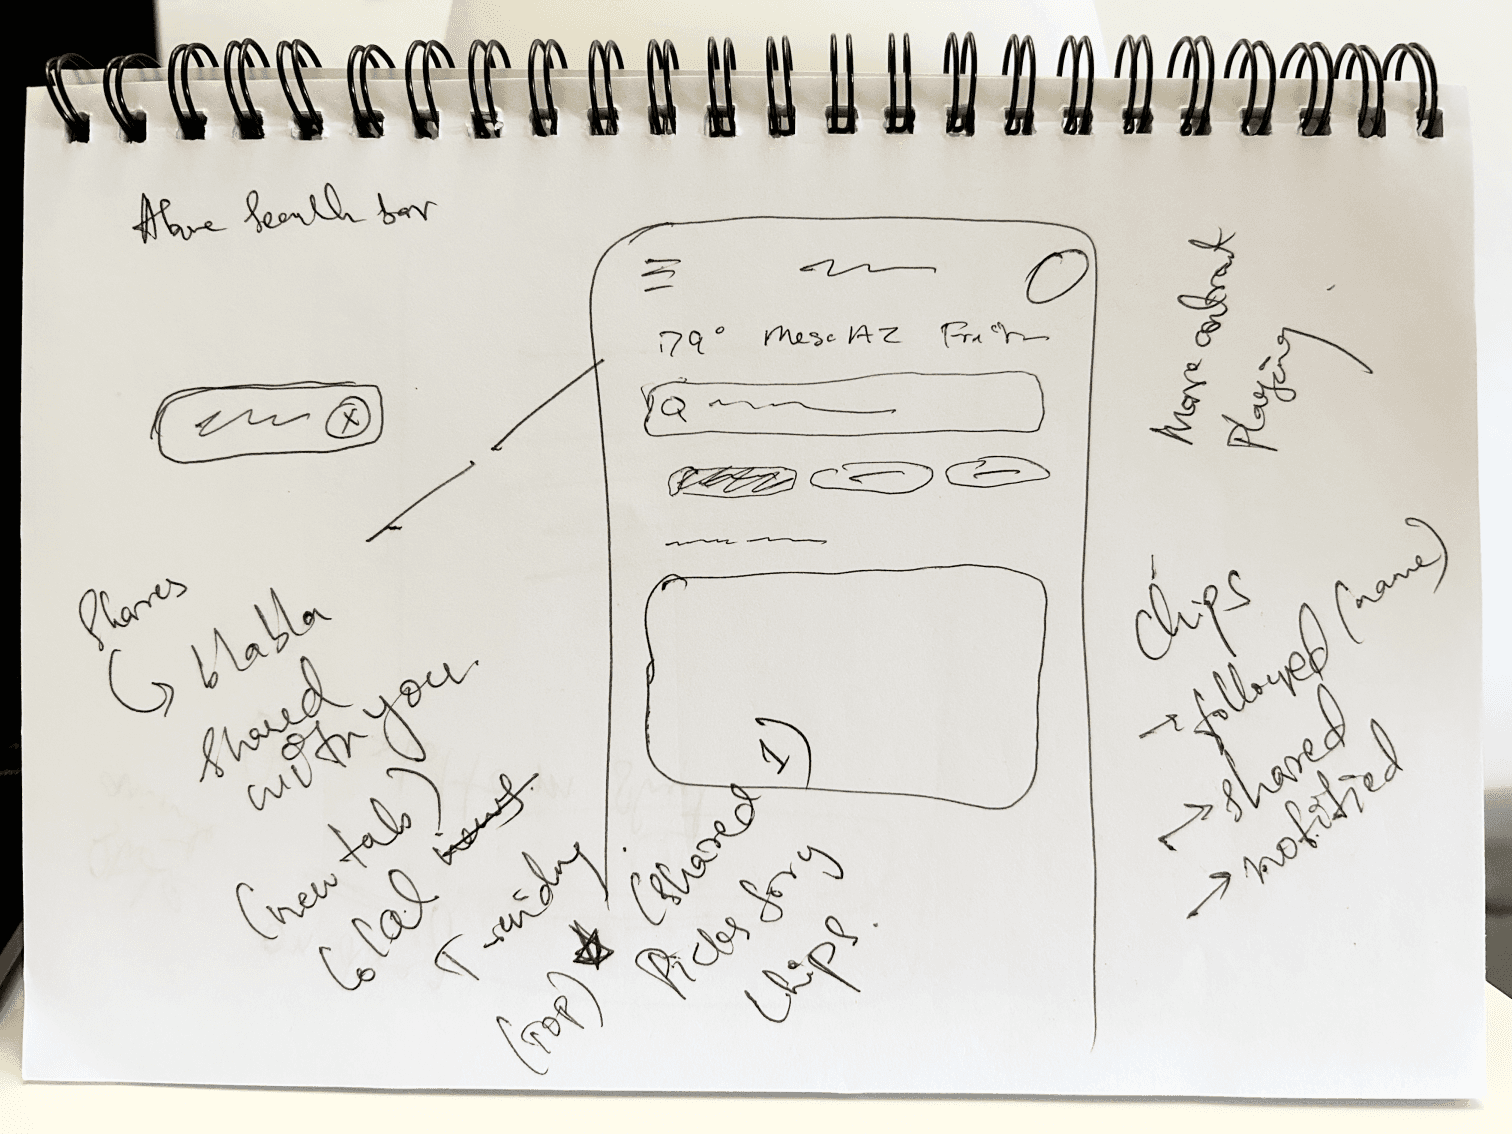 Above Search bar
79° Mesa AZ Fri
Q
x
More contrast
Playing
Shares
blabla
shared
with you.
(new tab)
Local news.
Trending
(TOP)
1)
(shared
Picks for y
chips.
Chips
→ followed (name)
→ shared
→ notified